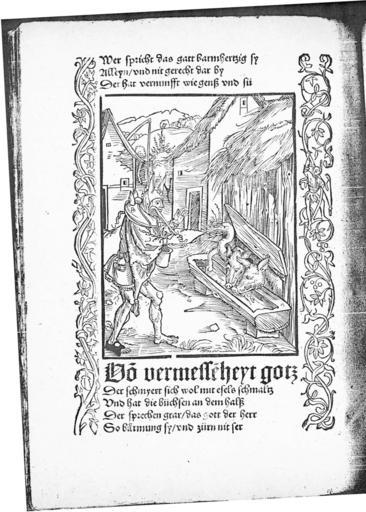 Wer spricht das gott barmhertzig sy
Alleyn/ vnd nit gerecht dar by
Der hat vernunfft wie genß vnd sü
Võ vermessēheyt gotz
Der schmyert sich wol mit esels schmaltz
Vnd hat die büchsen an dem halß
Der sprechen gtar/ das gott der herr
So bārmung sy/ vnd zürn nit ser